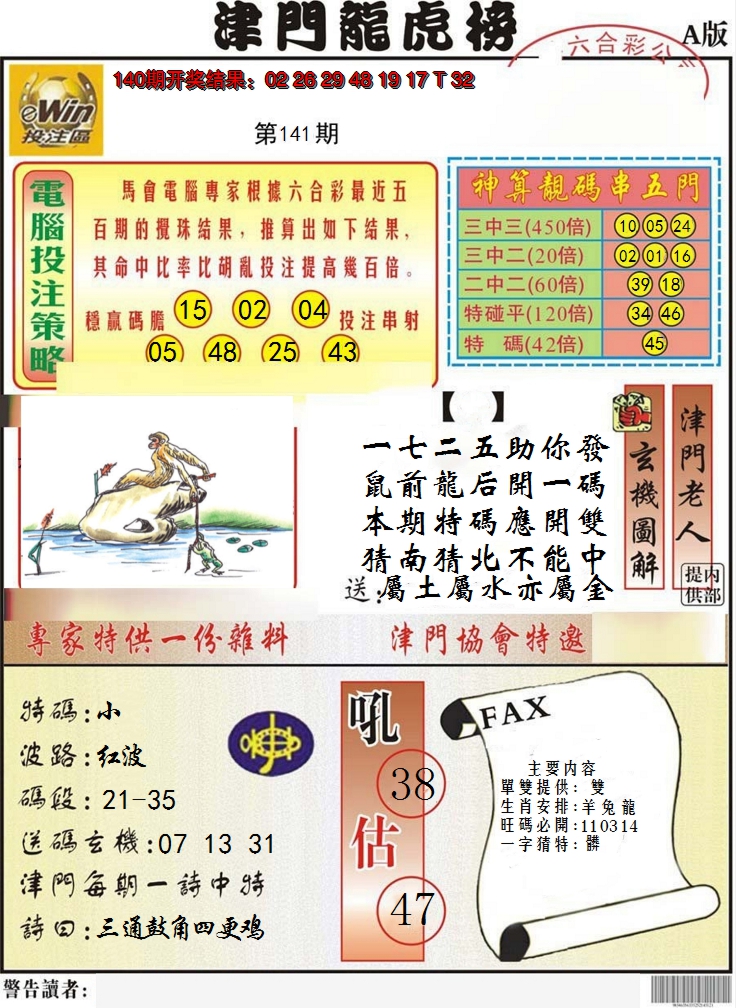 津門龍虎榜
A版
六合彩公
140期开奖结果：02 26 29 48 19 17 T 32
eWin
投注區
第141期
電腦投注策略
馬會電腦專家根據六合彩最近五
百期的攪珠结果，推算出如下结果，
其命中比率比胡亂投注提高幾百倍。
穩贏碼膽 15 02 04 投注串射
05 48 25 43
神算靚碼串五門
三中三(450倍) 10 05 24
三中二(20倍) 02 01 16
二中二(60倍) 39 18
特碰平(120倍) 34 46
特 碼(42倍) 45
【 】
一七二五助你發
鼠前龍后開一碼
本期特碼應開雙
猜南猜北不能中
送:屬土屬水亦屬金
玄機圖解
津門老人
内部提供
專家特供一份雜料
津門協會特邀
特碼:小
波路:红波
碼段:21-35
送碼玄機:07 13 31
津門每期一詩中特
詩曰:三通鼓角四更鸡
吼
38
估
47
FAX
主要内容
單雙提供: 雙
生肖安排:羊兔龍
旺碼必開:110314
一字猜特: 髒
警告讀者: